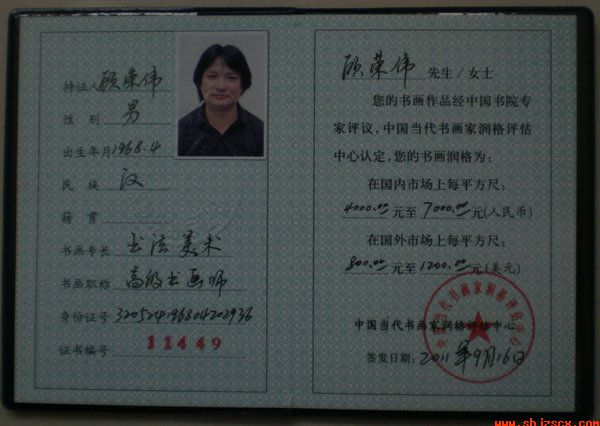 持证人 顾荣伟
性 别 男
出生年月 1968.4
民 族 汉
籍 贯
书画专长 书法 美术
书画职称 高级书画师
身份证号 320524196804202936
证书编号 11449
顾荣伟 先生/女士
您的书画作品经中国书院专
家评议，中国当代书画家润格评估
中心认定，您的书画润格为：
在国内市场上每平方尺：
4000.00元至7000.00元(人民币)
在国外市场上每平方尺：
800.00元至1200.00元(美元)
中国当代书画家润格评估中心
中国当代书画家润格评估中心
签发日期：2011年9月16日
www.shjzscx.com